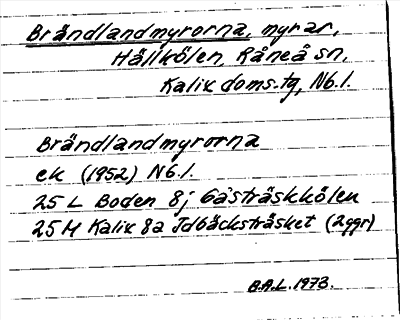 Brändlandmyrorna, myrar,
Hällkölen, Råneå sn,
Kalix doms.tg, Nb.l.
Brändlandmyrorna
ek (1952) Nb.l.
25 L Boden 8j Gåsträskkölen
25 M Kalix 8a Idbäcksträsket (2ggr)
B.A.L. 1973.